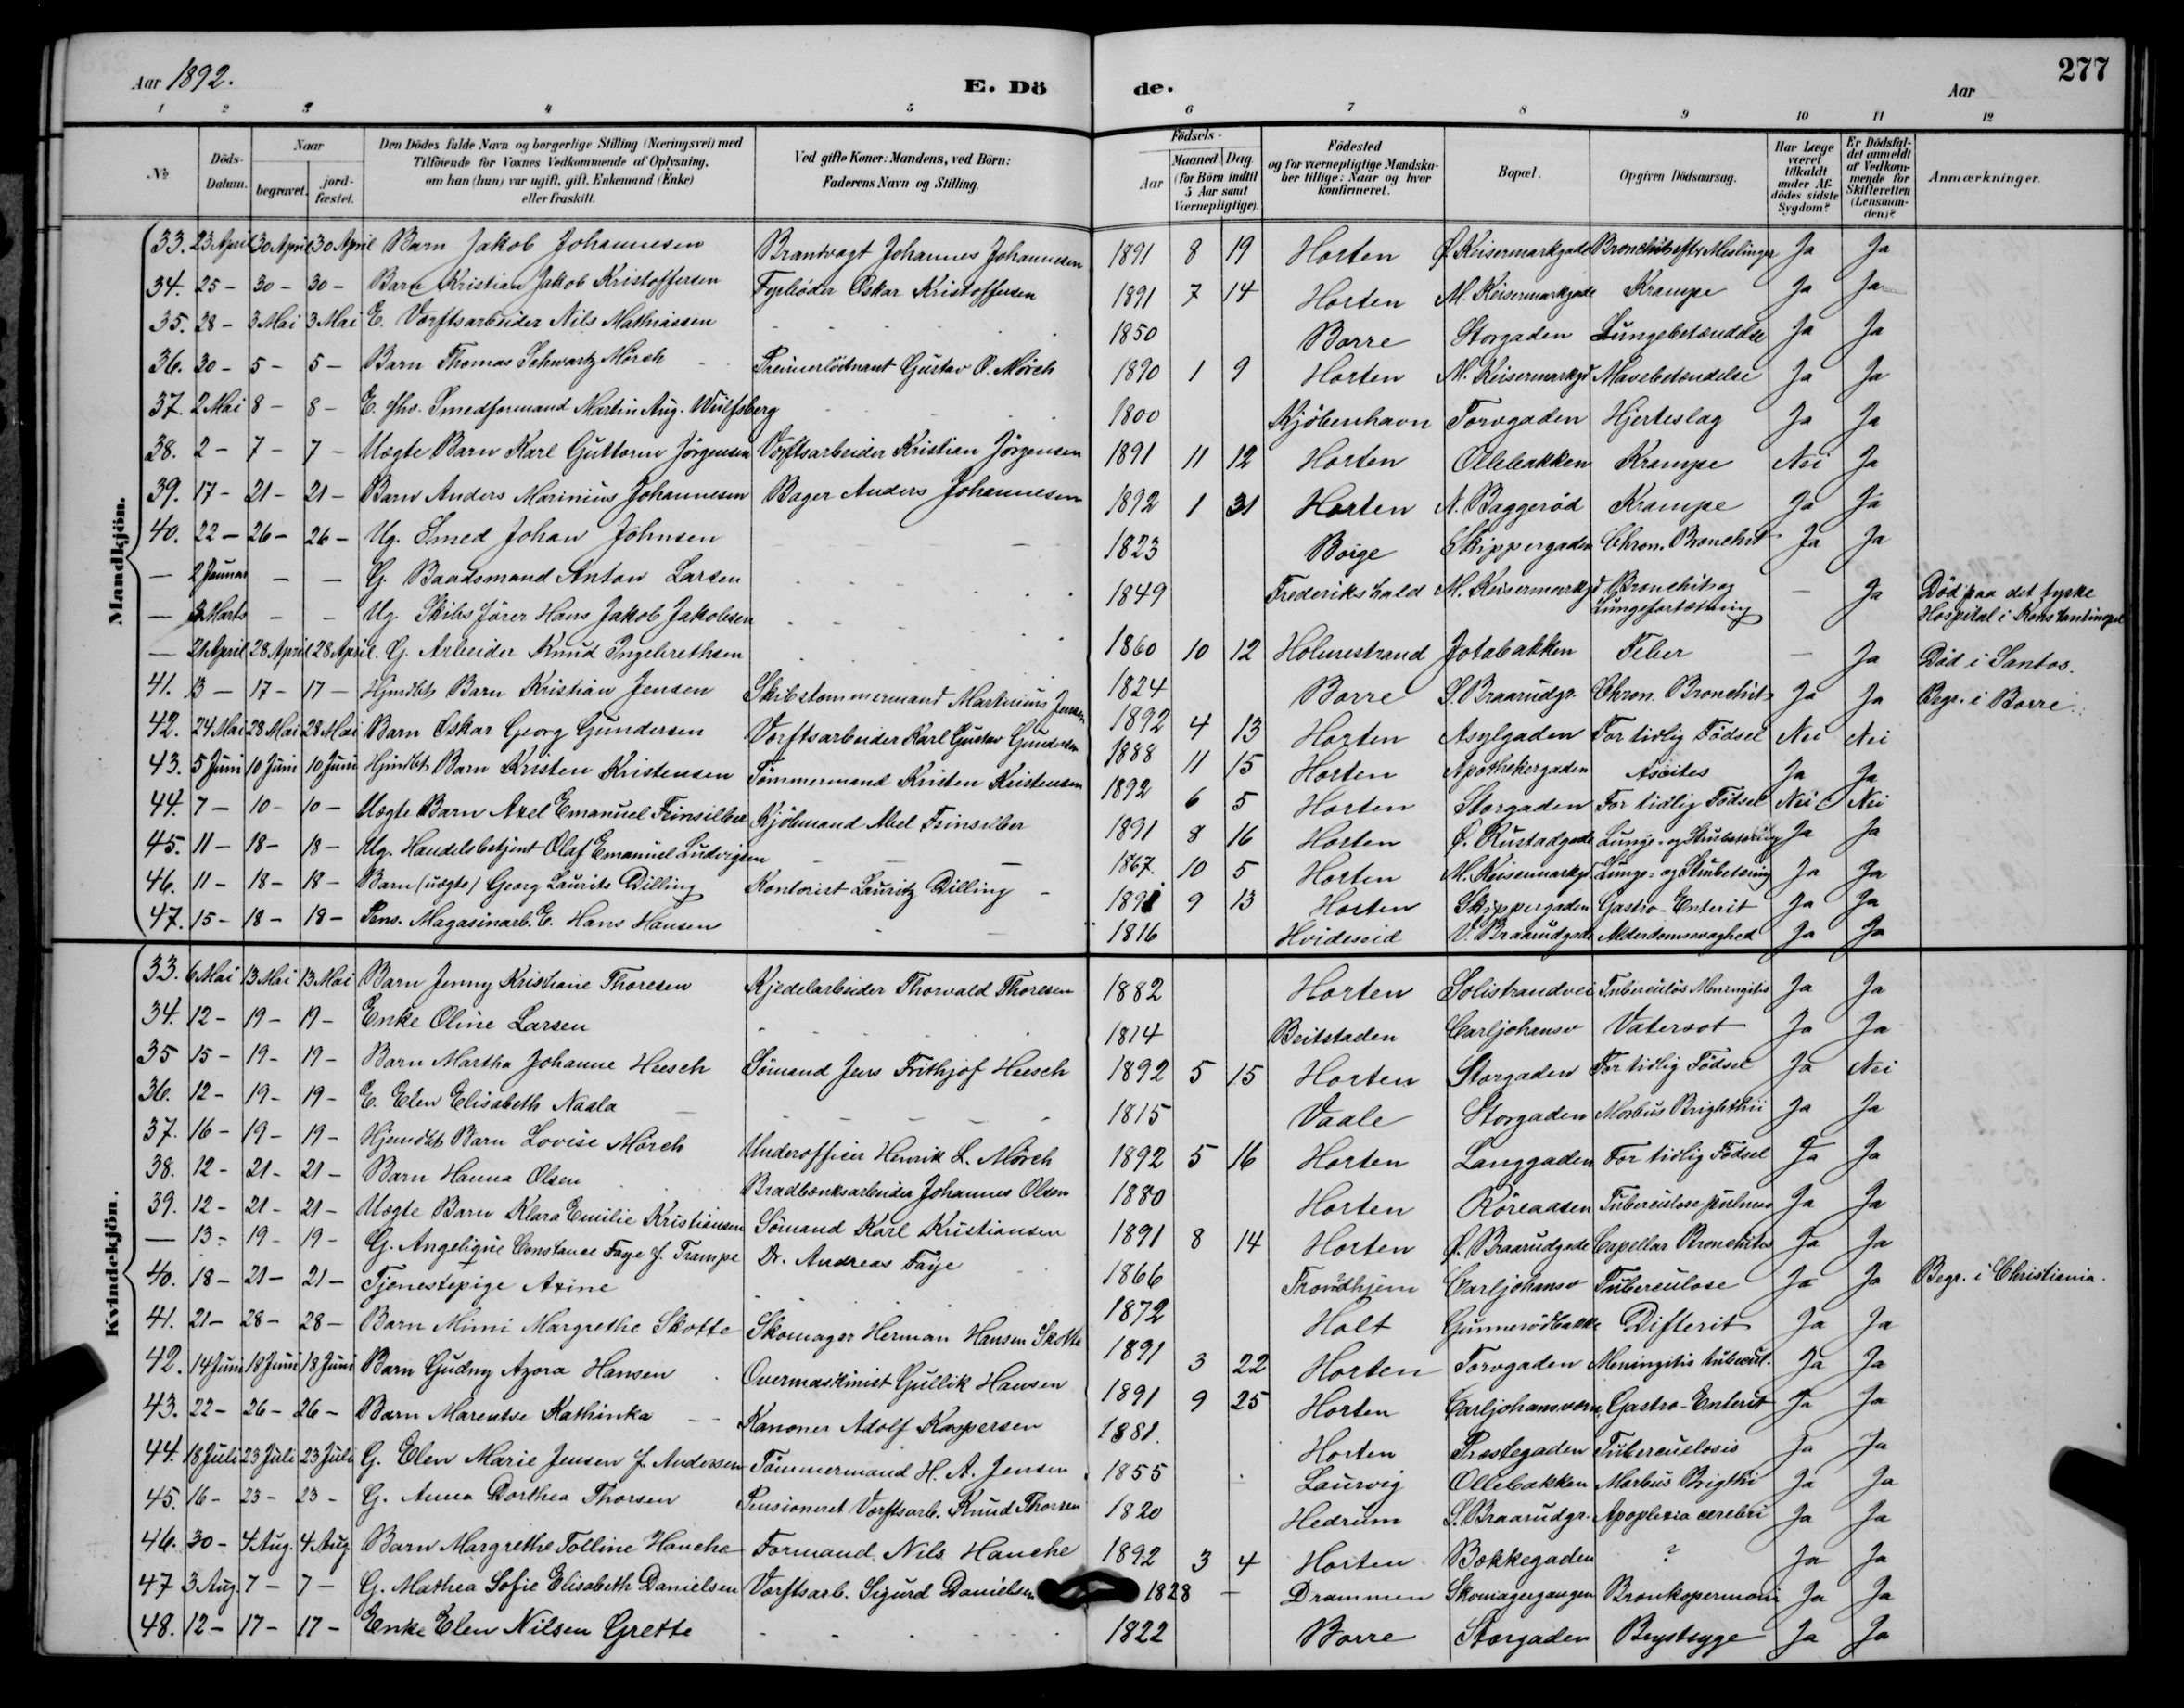 Aar 1892. E. Dö de. Aar 277
1 2 3 4 5 6 7 8 9 10 11 12
№ Döds-Datum. Naar begravet. jordfæstet. Den Dödes fulde Navn og borgerlige Stilling (Næringsvei) med Tilföiende for Voxnes Vedkommende af Oplysning, om han (hun) var ugift, gift, Enkemand (Enke) eller fraskilt. Ved gifte Koner: Mandens, ved Börn: Faderens Navn og Stilling. Födsels- Aar Maaned. Dag. (for Börn indtil 5 Aar samt Værnepligtige). Födested og for værnepligtige Mandskaber tillige: Naar og hvor Konfirmeret. Bopæl. Opgiven Dödsaarsag. Har Læge været tilkaldt under Afdödes sidste Sygdom? Er Dödsfaldet anmeldt af Vedkommende for Skifteretten (Lensmanden)? Anmærkninger.
Mandkjön.
33. 23 April 30 April 30 April Barn Jakob Johannesen Brandvagt Johannes Johannesen 1891 8 19 Horten Ø. Keisermarkgade Bronchit eftr Meslinger Ja Ja
34. 25 - 30 - 30 - Barn Kristian Jakob Kristoffersen Fyrböder Oskar Kristoffersen 1891 7 14 Horten M. Keisermarkgade Krampe Ja Ja
35. 28 - 3 Mai 3 Mai E. Værftsarbeider Nils Mathiassen 1850 Borre Storgaden Lungebetændelse Ja Ja
36. 30 - 5 - 5 - Barn Thomas Schwartz Mörch Premierlöitnant Gustav O. Mörch 1890 1 9 Horten M. Keisermarkgd Mavebetændelse Ja Ja
37. 2 Mai 8 - 8 - E. fhv. Smedformand Martin Aug. Wulfsberg 1800 Kjöbenhavn Torvgaden Hjerteslag Ja Ja
38. 2 - 7 - 7 - Uægte Barn Karl Guttorm Jörgensen Værftsarbeider Kristian Jörgensen 1891 11 12 Horten Ollebakken Krampe Nei Ja
39. 17 - 21 - 21 - Barn Anders Marinius Johannesen Bager Anders Johannesen 1892 1 31 Horten N. Baggeröd Krampe Ja Ja
40. 22 - 26 - 26 - Ug. Smed Johan Johnsen 1823 Borge Skippergaden Chron. Bronchit Ja Ja
— 2 Januar - - G. Baadsmand Anton Larsen 1849 Frederikshald M. Keisermarkgd Bronchit og Lungefortætning - Ja Död paa det tyske Hospital i Konstantinopel
— 3 Marts - - Ug. Skibsförer Hans Jakob Jakobsen 1860 10 12 Holmestrand Jotabakken Feber - Ja Död i Santos.
— 21 April 28 April 28 April. G. Arbeider Knud Ingebrethsen 1824 Borre S. Braarudgr. Chron. Bronchit Ja Ja Begr. i Borre.
41. 13 - 17 - 17 - Hjmdbt Barn Kristian Jensen Skibstømmermand Martinius Jensen 1892 4 13 Horten Asylgaden For tidlig Födsel Nei Nei
42. 24 Mai 28 Mai 28 Mai Barn Oskar Georg Gundersen Værftsarbeider Karl Gustav Gundersen 1888 11 15 Horten Apothekergaden Ascites Ja Ja
43. 5 Juni 10 Juni 10 Juni Hjmdbt Barn Kristen Kristensen Tömmermand Kristen Kristensen 1892 6 5 Horten Storgaden For tidlig Födsel Nei Nei
44. 7 - 10 - 10 - Uægte Barn Axel Emanuel Feinsilber Kjöbmand Abel Feinsilber 1891 8 16 Horten Ø. Rustadgade Lunge- og Strubetæring Ja Ja
45. 11 - 18 - 18 - Ug. Handelsbetjent Olaf Emanuel Ludvigsen 1867. 10 5 Horten M. Keisermarkgd. Lunge- og Strubetæring Ja Ja
46. 11 - 18 - 18 - Barn (uægte) Georg Laurits Dilling Kontorist Lauritz Dilling 1891 9 13 Horten Skippergaden Gastro-Enterit Ja Ja
47. 15 - 18 - 18 - Pens. Magasinarb. E. Hans Hansen 1816 Hvideseid V. Braarudgade Alderdomssvaghed Ja Ja
Kvindekjön.
33. 6 Mai 13 Mai 13 Mai Barn Jenny Kristiane Thoresen Kjedelarbeider Thorvald Thoresen 1882 Horten Solistrandvei Tuberculös Meningitis Ja Ja
34. 12 - 19 - 19 - Enke Oline Larsen 1814 Beitstaden Carljohansv Vatersot Ja Ja
35 15 - 19 - 19 - Barn Martha Johanne Heesch Sömand Jens Frithjof Heesch 1892 5 15 Horten Storgaden For tidlig Födsel Ja Nei
36. 12 - 19 - 19 - E. Elen Elisabeth Naala 1815 Vaale Storgaden Morbus Brighthii Ja Ja
37. 16 - 19 - 19 - Hjemdbt Barn Lovise Mörch Underofficer Henrik L. Mörch 1892 5 16 Horten Langgaden For tidlig Födsel Ja Ja
38. 12 - 21 - 21 - Barn Hanna Olsen Bradbænksarbeider Johannes Olsen 1880 Horten Röreaasen Tuberculose pulmon Ja Ja
39. 12 - 21 - 21 - Uægte Barn Klara Emilie Kristiansen Sömand Karl Kristiansen 1891 8 14 Horten Ø. Braarudgade Capellar Bronchites Ja Ja
— 13 - 19 - 19 - G. Angelique Constance Faye f. Trampe Dr. Andreas Faye 1866 Trondhjem Carljohansv Tuberculose Ja Ja Begr. i Christiania.
40. 18 - 21 - 21 - Tjenestepige Axine 1872 Holt Gunnerödbakke Difterit Ja Ja
41. 21 - 28 - 28 - Barn Mimi Margrethe Skotte Skomager Herman Hansen Skotte 1891 3 22 Horten Torvgaden Meningitis tubercul. Ja Ja
42. 14 Juni 18 Juni 18 Juni Barn Gudny Azora Hansen Overmaskinist Gullik Hansen 1891 9 25 Horten Carljohansværn. Gastro-Enterit Ja Ja
43. 22 - 26 - 26 - Barn Marentse Kathinka Kanoner Adolf Kaspersen 1881. Horten Præstegaden Tuberculosis Ja Ja
44. 18 Juli 23 Juli 23 Juli G. Elen Marie Jensen f. Andersen Tömmermand H. A. Jensen 1855 Laurvig Ollebakken Morbus Brigthi Ja Ja
45. 16 - 23 - 23 - G. Anna Dorthea Thorsen Pensioneret Værftsarb. Knud Thorsen 1820 Hedrum S. Braarudgr. Apoplexia cerebri Ja Ja
46. 30 - 4 Aug. 4 Aug Barn Margrethe Tolline Hanche Formand Nils Hanche 1892 3 4 Horten Bökkegaden ? Ja Ja
47 3 Aug. 7 - 7 - G. Mathea Sofie Elisabeth Danielsen Værftsarb. Sigurd Danielsen 1828 - Drammen Skomagergangen Ja Ja
48. 12 - 17 - 17 - Enke Elen Nilsen Grette 1822 Borre Storgaden Brystsyge Ja Ja